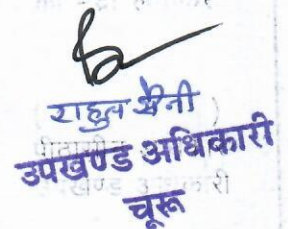 राहुल सैनी
उपखण्ड अधिकारी
चूरू